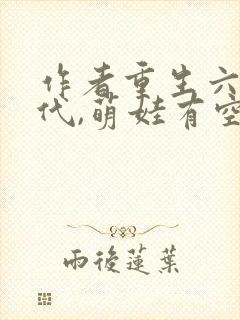 作者重生六
代,萌娃有空
雨後蓮葉